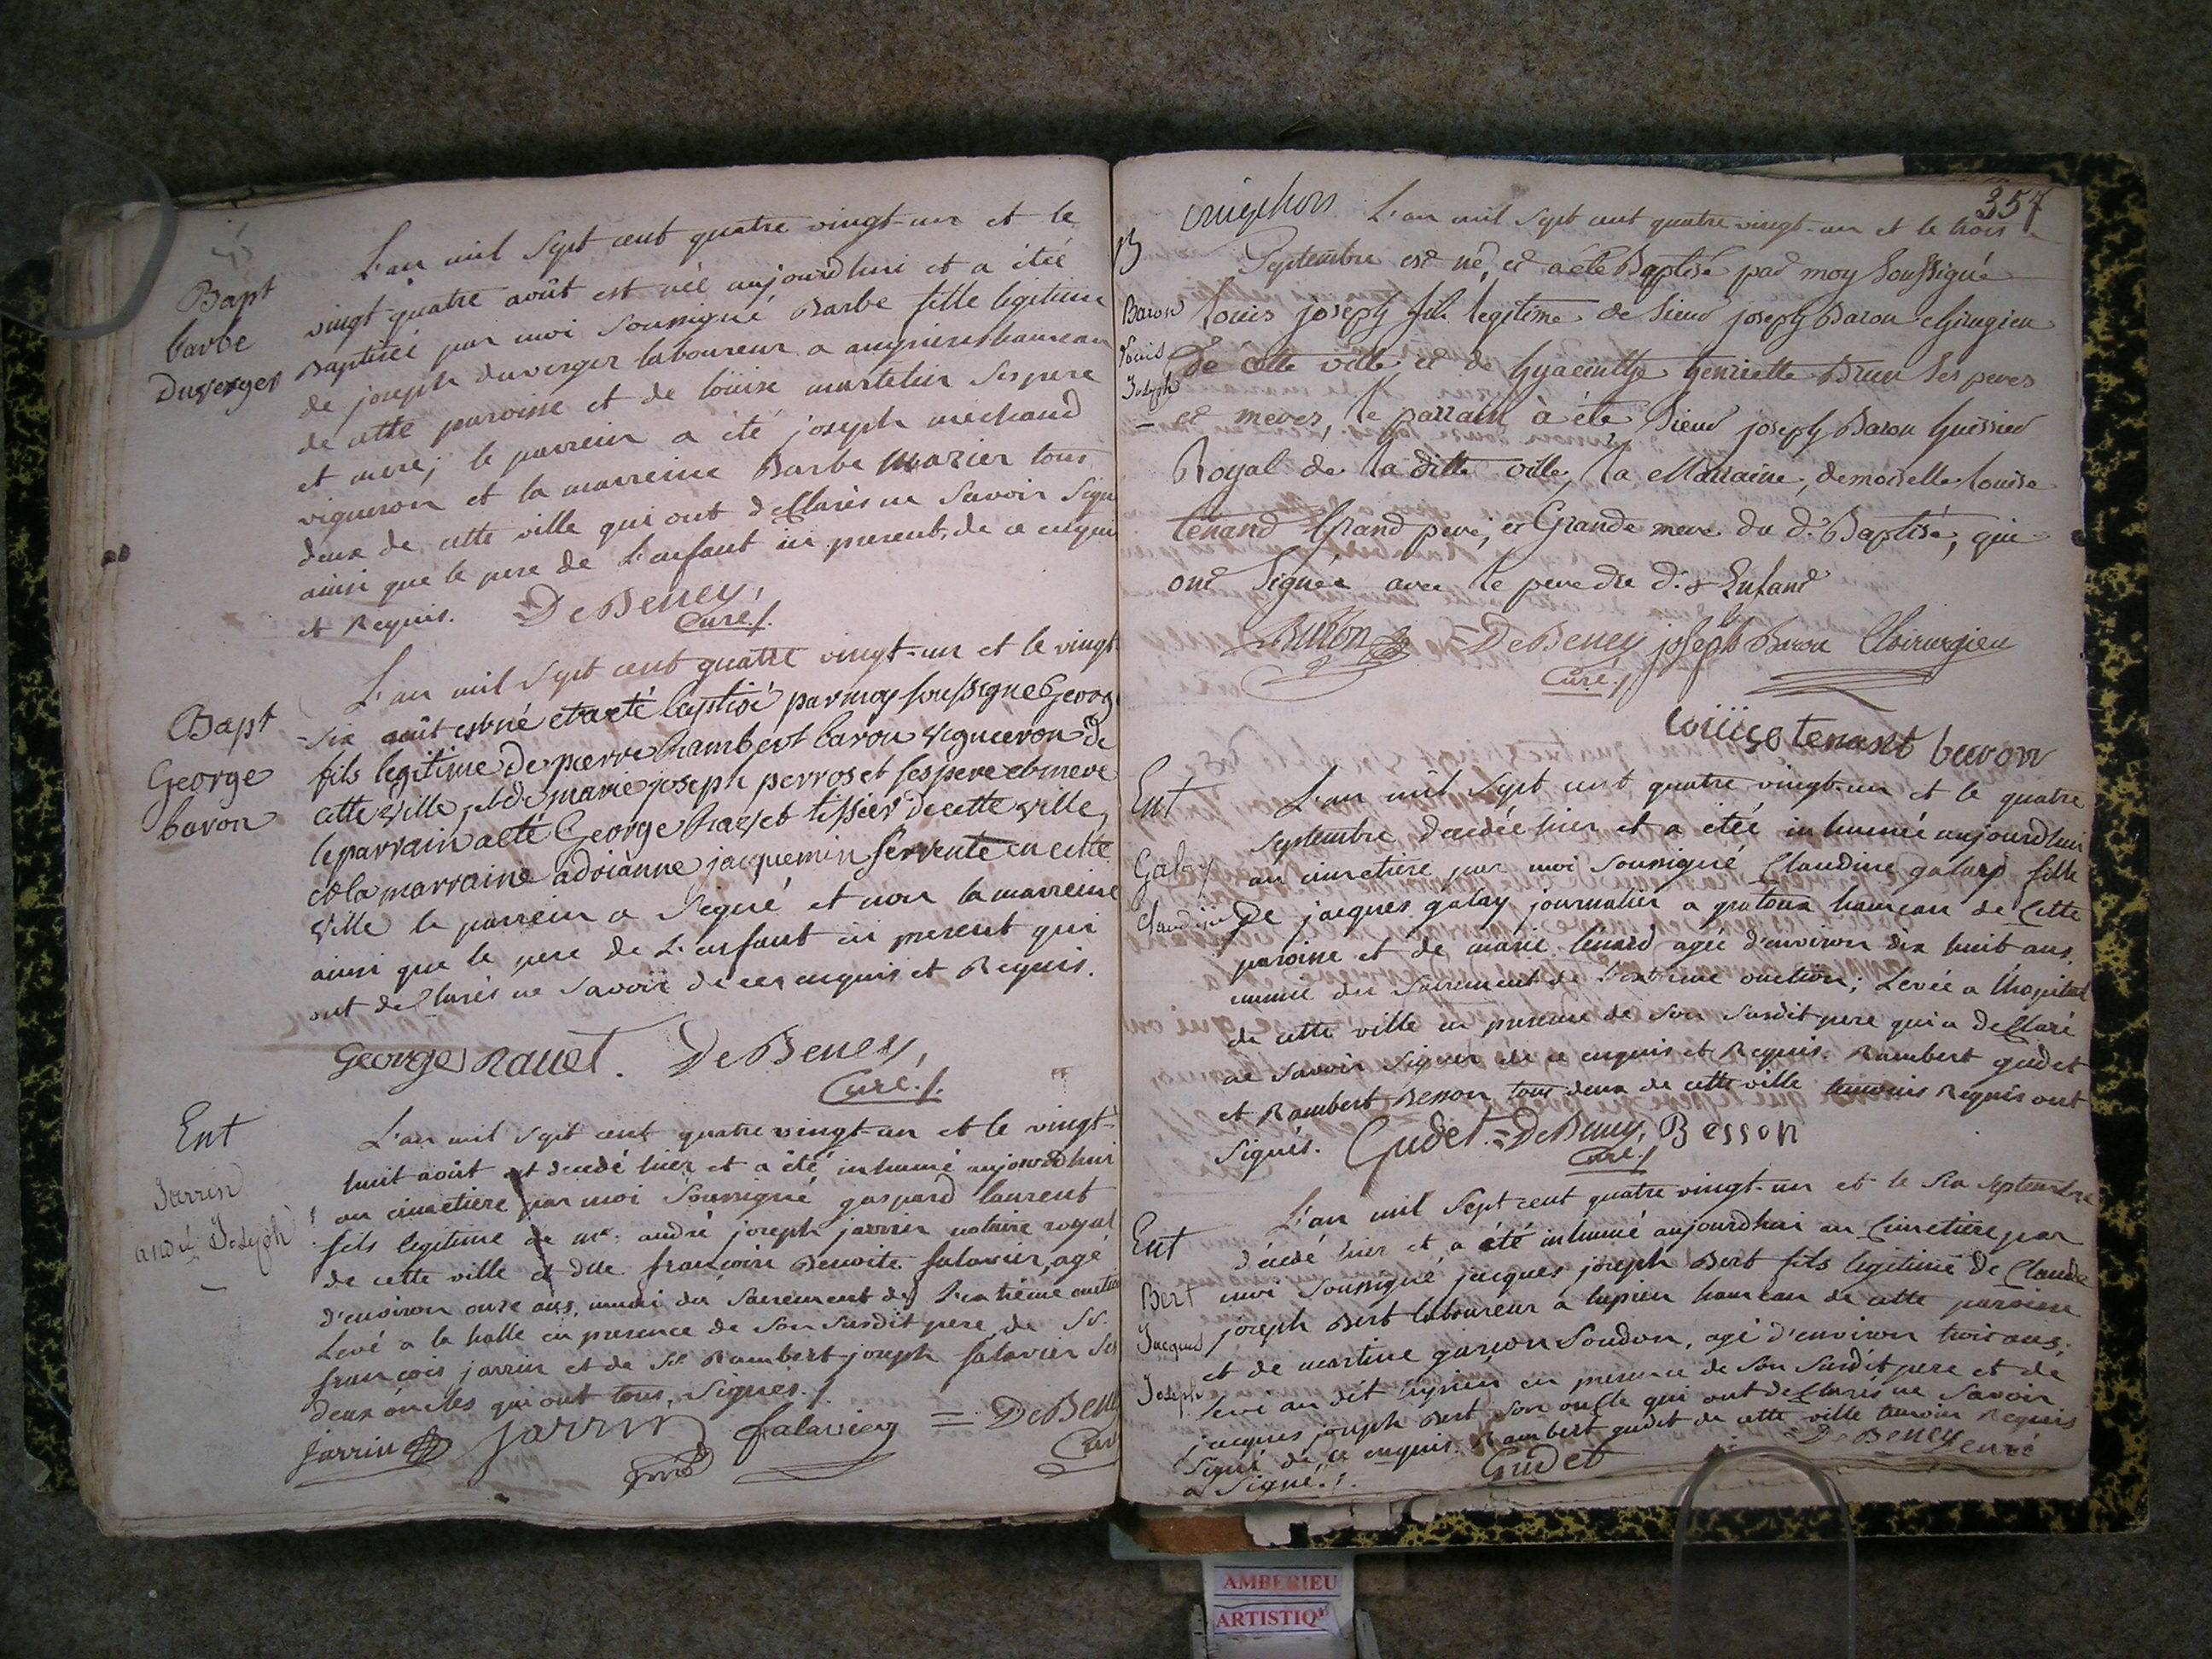 Bapt
barbe
Duverger
L'an mil sept cent quatre vingt-un et le
vingt-quatre août est née aujourdhui et a étée
Baptisée par moi soussigné Barbe fille legitime
de joseph duverger laboureur a hameau
de cette paroisse et de loüise martelin ses pere
et mere; le parrein a été joseph mechaud
vigneron et la marreine Barbe Mazier tous
deux de cette ville qui ont déclarés ne savoir signer
ainsi que le pere de l'enfant ici present, de ce enquis
et Requis. DeBeney,
Curé./.
Bapt
George
baron
L'an mil sept cent quatre vingt-un et le vingt-
six août est né et a eté baptisé par moy soussigné George
fils legitime de pierre hambert baron vigneron de
cette ville, et de marie joseph perroset ses pere et mere
le parrain a eté George tissier de cette ville,
et la marraine adrianne jacquemin servente en cette
ville le parrein a signé et non la marreine
ainsi que le pere de l'enfant ici present qui
ont déclarés ne savoir de ce enquis et Requis.
George navet. DeBeney,
Curé./.
Ent
Jarrin
andré Joseph
L'an mil sept cent quatre vingt-un et le vingt-
huit août est decedé hier et a été inhumé aujourdhui
au cimetiere par moi soussigné gaspard laurent
fils legitime de mr. andré joseph jarrin notaire royal
de cette ville et dlle françoise Benoite falavier, agé
d'environ onze ans, muni du sacrement de l'extrême onction
Levé a la halle en presence de son susdit pere, de Sr.
françois jarrin et de Sr. Rambert joseph falavier ses
deux oncles qui ont tous signés./.
Jarrin Jarrin falavier = DeBeney
Curé
357
L'an mil sept cent quatre vingt-un et le trois
B
Baron
Louis
Joseph
Septembre est né, et a été Baptisé par moy soussigné
louis joseph fils legitime de sieur joseph Baron chirugien
de cette ville, et de hyacinthe henriette Brun ses peres
et meres, le parrain à été sieur joseph Baron huissier
Royal de la ditte ville, la Marraine, demoiselle louise
tenand Grand pere, et Grande mere du d. Baptisé, qui
ont signés avec le pere du d. Enfant
Baron DeBeney joseph Baron Chirurgien
Curé./
loüise tenant baron
Ent
Galay
Claudine
L'an mil sept cent quatre vingt-un et le quatre
septembre decedée hier et a étée inhumée aujourdhui
au cimetiere par moi soussigné Claudine galay fille
de jacques galay journalier a gratoux hameau de cette
paroisse et de marie lenard agée d'environ dix huit ans,
munie du sacrement de l'extrême onction; Levée a l'hopital
de cette ville en presence de son susdit pere qui a déclaré
ne savoir signer de ce enquis et Requis. Rambert gudet
et Rambert Besson tous deux de cette ville temoins Requis ont
signés. Gudet. = DeBeney, Besson
Curé./
Ent
Bert
Jacques
Joseph
L'an mil sept cent quatre vingt-un et le six septembre
décédé hier et a été inhumé aujourdhui au Cimetiere par
moi soussigné jacques joseph Bert fils legitime de Claude
joseph Bert laboureur a lupieu hameau de cette paroisse
et de martine garçon Soudon, agé d'environ trois ans,
levé au dit lupieu en presence de son susdit pere et de
jacques joseph Bert son oncle qui ont déclarés ne savoir
signé de ce enquis. Rambert gudet de cette ville temoin Requis
a signé./. Gudet DeBeney curé
AMBERIEU
ARTISTIQ